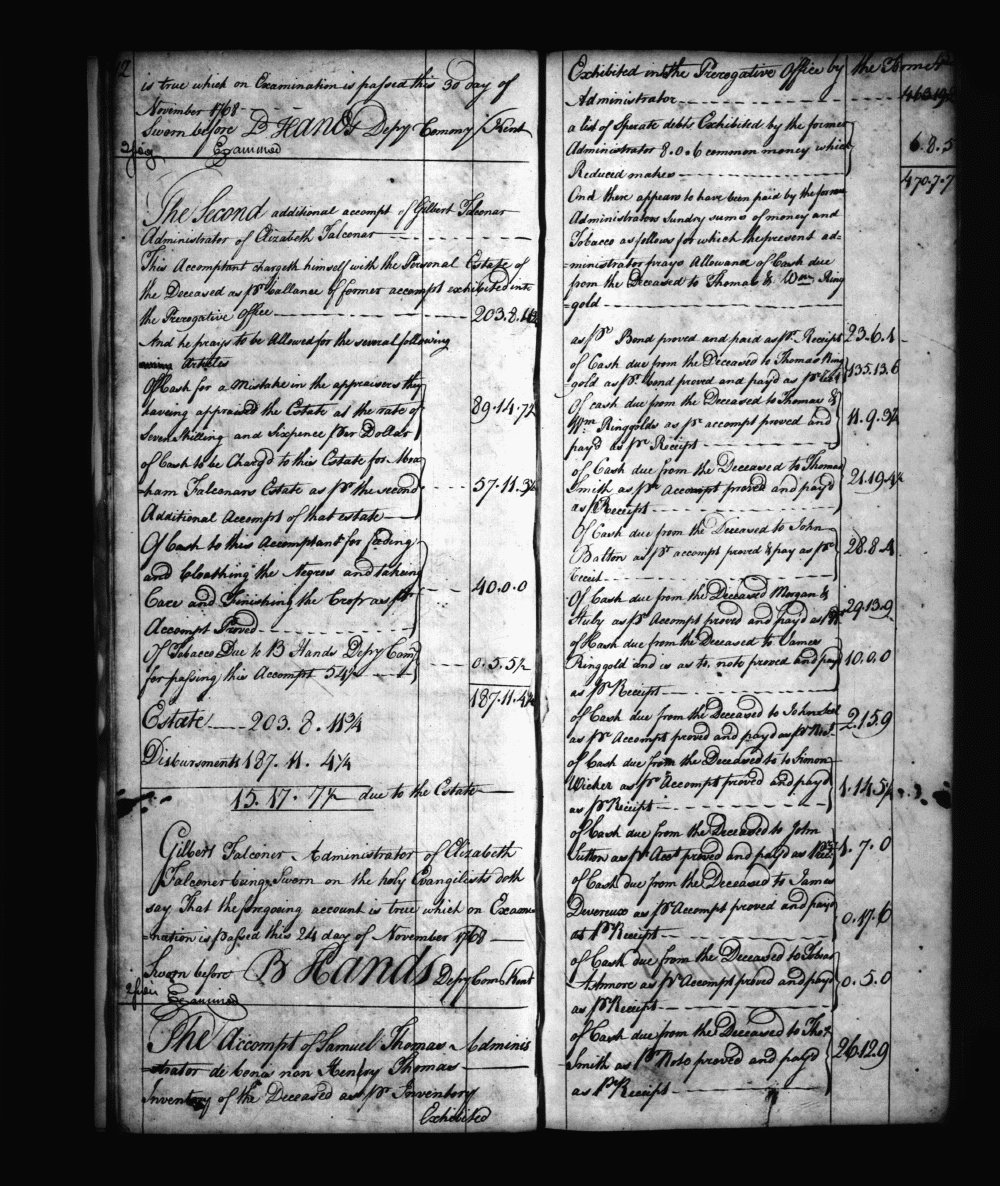 2
is true which on Examination is passed this 30 day of
November 1768
Sworn before B Hands Depy Comony Kent
Examined
The Second additional accompt of Gilbert Falconar
Administrator of Elizabeth Falconar
This Accomptant chargeth himself with the Personal Estate of
the Deceased as pr ballance of former accompt exhibited into
the Prerogative Office 203.8.11¾
And he prays to be Allowed for the several following
Articles
Of Cash for a Mistake in the appraisers they
having appraised the Estate at the rate of 89.14.7½
Seven Shilling and Sixpence per Dollar
of Cash to be Charg'd to this Estate for Abra
ham Falconars Estate as pr the second 57.11.3¾
Additional Accompt of that estate
Of Cash to this Accomptant for feeding
and Cloathing the Negros and takeing
Care and Finishing the Crop as pr 40.0.0
Accompt Proved
Of Tobacco Due to B Hands Depy Comy
for passing this Accompt 54½ 0.5.5½
187.11.4¼
Estate 203.8.11¾
Disbursments 187.11.4¼
15.17.7½ due to the Estate
Gilbert Falconer Administrator of Elizabeth
Falconer being Sworn on the holy Evangelists doth
say That the foregoing account is true which on Exami
=nation is passed this 24 day of November 1768
Sworn before B Hands Depy Com Kent
Examined
The Accompt of Samuel Thomas Adminis
trator de bona non Henry Thomas
Inventory of the Deceased as pr Inventory
Exhibited
Exhibited into the Prerogative Office by the former
Administrator
a list of Sperate debts Exhibited by the former
Administrator 8.0.6 common money which 6.8.5
Reduced makes
470.7.7
And there appears to have been paid by the former
Administrators Sundry sums of money and
Tobacco as follows for which the present ad=
=ministrator prays Allowance of Cash due
from the Deceased to Thomas & Wm Ring
=gold
as pr Bond proved and paid as pr Receipt 23.6.1
of Cash due from the Deceased to Thomas Ring
gold as pr bond proved and payd as pr 135.13.6
Of cash due from the Deceased to Thomas &
Wm Ringgolds as pr accompt proved and 11.9.3½
payd as pr Receipt
of Cash due from the Deceased to Thomas
Smith as pr Accompt proved and payd 21.19.4½
as pr Receipt
Of Cash due from the Deceased to John
Balton as pr accompt proved & pay as pr 28.8.4
Receit
Of Cash due from the Deceased Morgan &
Stuly as pr Accompt proved and payd as pr 29.13.9
of Cash due from the Deceased to James
Ringgold and is as to note proved and pay 10.0.0
as pr Receipt
of Cash due from the Deceased to John
as pr Accompt proved and payd as pr Rect 2.15.9
of Cash due from the Deceased to Simon
Wicker as pr Accompt proved and payd 1.14.5½
as pr Receipt
of Cash due from the Deceased to John
Sutton as pr Acct proved and payd as 1.7.0
of Cash due from the Deceased to James
Devereux as pr Accompt proved and payd 0.17.6
as pr Receipt
of Cash due from the Deceased to Tobias
Ashmore as pr Accompt proved and payd 0.5.0
as pr Receipt
of Cash due from the Deceased to Thos
Smith as pr Note proved and payd 26.12.9
as pr Receipt